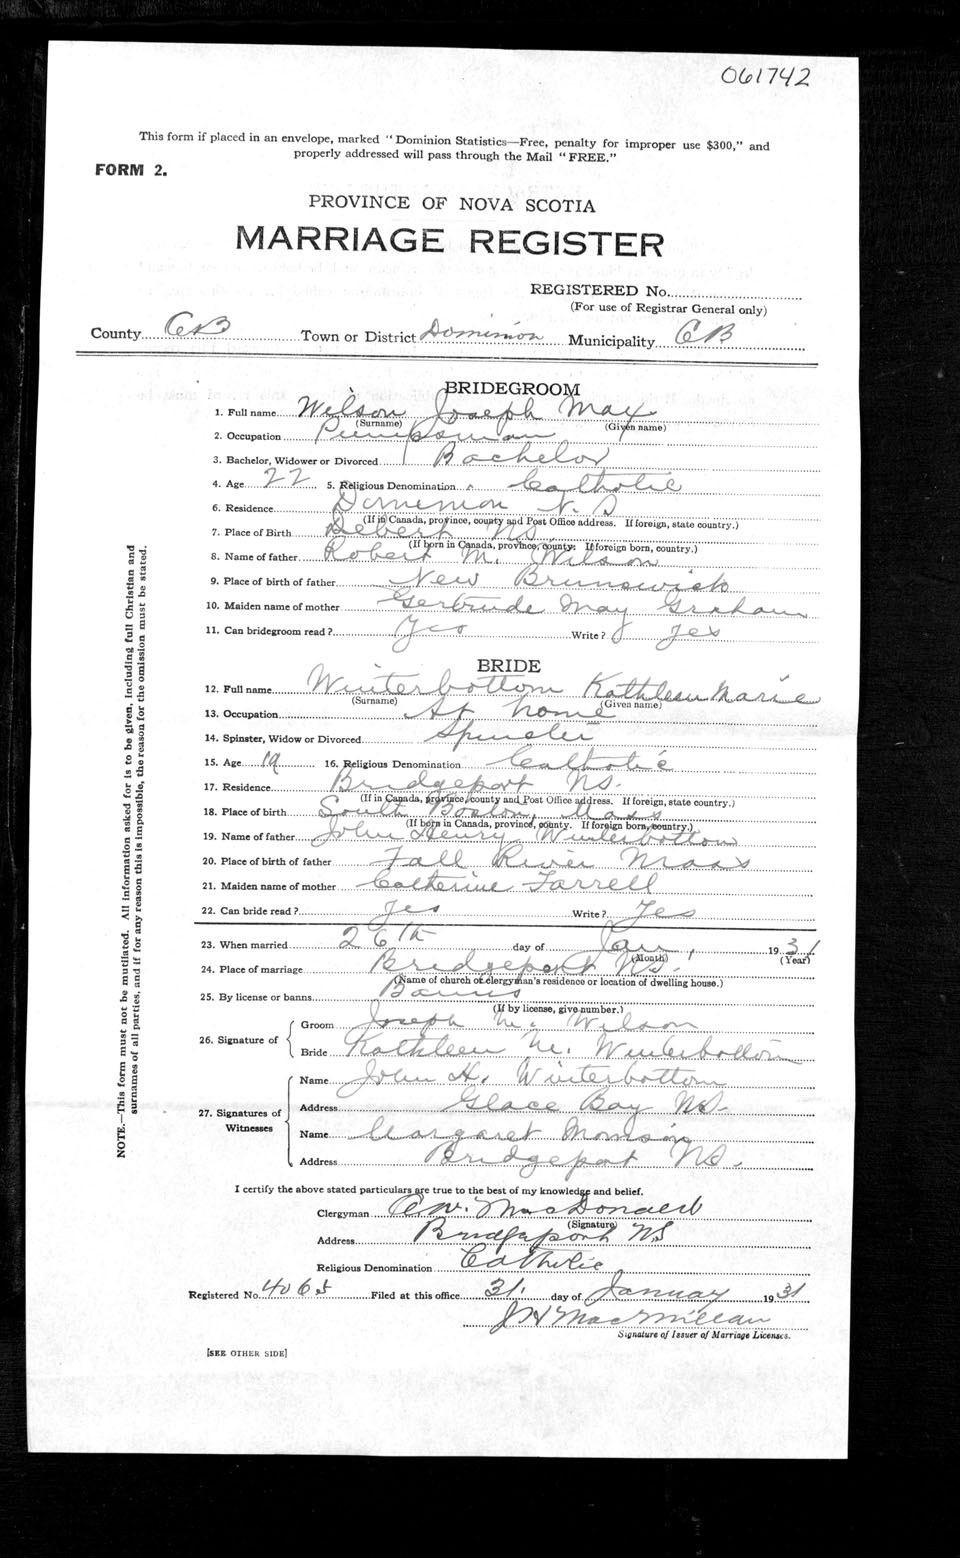 061742
This form if placed in an envelope, marked "Dominion Statistics—Free, penalty for improper use $300," and
properly addressed will pass through the Mail "FREE."
FORM 2.
PROVINCE OF NOVA SCOTIA
MARRIAGE REGISTER
REGISTERED No.
(For use of Registrar General only)
County CB Town or District Dominion Municipality CB
BRIDEGROOM
1. Full name Wilson Joseph May
(Surname) (Given name)
2. Occupation Pumpsman
3. Bachelor, Widower or Divorced Bachelor
4. Age 22 5. Religious Denomination Catholic
6. Residence Dominion N.S
(If in Canada, province, county and Post Office address. If foreign, state country.)
7. Place of Birth Debert NS
(If born in Canada, province, county. If foreign born, country.)
8. Name of father Robert M. Wilson
9. Place of birth of father New Brunswick
10. Maiden name of mother Gertrude May Graham
11. Can bridegroom read? Yes Write? Yes
BRIDE
12. Full name Winterbottom Kathleen Marie
(Surname) (Given name)
13. Occupation At home
14. Spinster, Widow or Divorced Spinster
15. Age 19 16. Religious Denomination Catholic
17. Residence Bridgeport NS.
(If in Canada, province, county and Post Office address. If foreign, state country.)
18. Place of birth South Boston, Mass
(If born in Canada, province, county. If foreign born, country.)
19. Name of father John Henry Winterbottom
20. Place of birth of father Fall River Mass
21. Maiden name of mother Catherine Farrell
22. Can bride read? Yes Write? Yes
23. When married 26th day of Jan. 1931
(Month) (Year)
24. Place of marriage Bridgeport NS.
(Name of church or clergyman's residence or location of dwelling house.)
25. By license or banns Banns
(If by license, give number.)
26. Signature of Groom Joseph M. Wilson
Bride Kathleen M. Winterbottom
27. Signatures of Witnesses Name John H. Winterbottom
Address Glace Bay NS.
Name Margaret
Address Bridgeport NS.
I certify the above stated particulars are true to the best of my knowledge and belief.
Clergyman MacDonald
(Signature)
Address Bridgeport NS
Religious Denomination Catholic
Registered No. 4065 Filed at this office 31. day of January 1931
J H MacMillan
Signature of Issuer of Marriage Licenses.
[SEE OTHER SIDE]
NOTE.—This form must not be mutilated. All information asked for is to be given, including full Christian and
surnames of all parties, and if for any reason this is impossible, the reason for the omission must be stated.